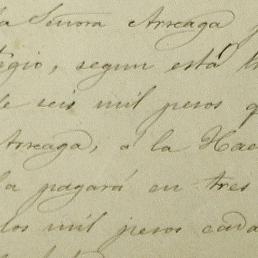 la Señora Arreaga
égio, segun está
de seis mil pesos q
Arreaga, a la Hac
la pagará en tres
dos mil pesos cada